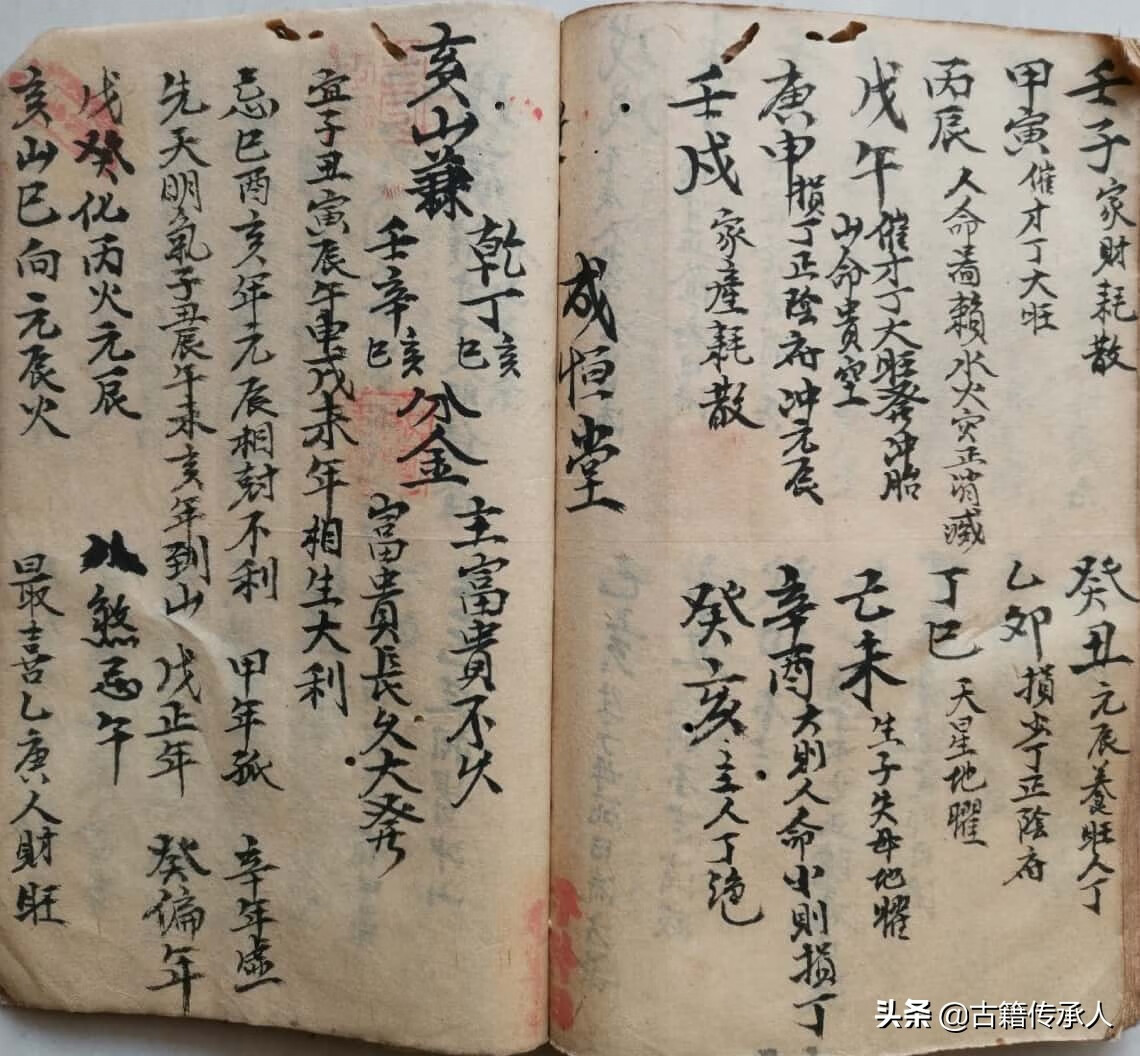 壬子 家財耗散 癸丑 元辰養旺人丁
甲寅 催才丁大旺 乙卯 損少丁正陰府
丙辰 人命啚賴水火灾正消滅 丁巳 天星地曜
戊午 催才丁大旺發冲胎 山命貴空 己未 生子失母地曜
庚申 損丁正陰府冲元辰 辛酉 大則人命小則損丁
壬戍 家產耗散 癸亥 主人丁絕
成恒堂
亥山兼 乾丁亥巳 壬辛亥巳 分金 主富貴不久 富貴長久大發
宜子丑寅辰午申戊未年相生大利
忌巳酉亥年元辰相尅不利 甲年孤 辛年虛
先天明氣子丑辰午未亥年到山 戊正年 癸偏年
戊癸化丙火元辰 煞忌午
亥山巳向元辰火 最喜乙庚人財旺
头条 @古籍传承人